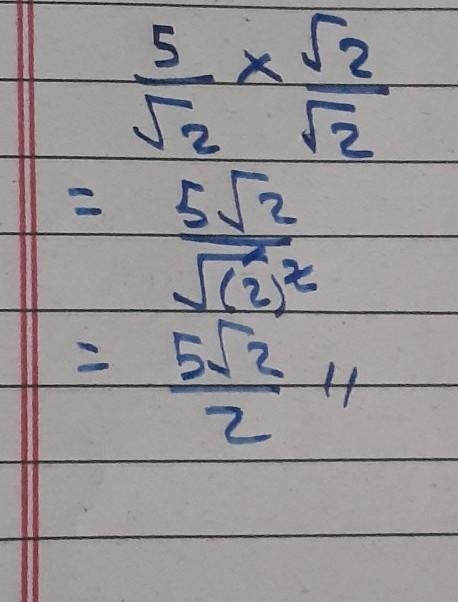 5/√2 × √2/√2
= 5√2/√(2)²
= 5√2/2 "